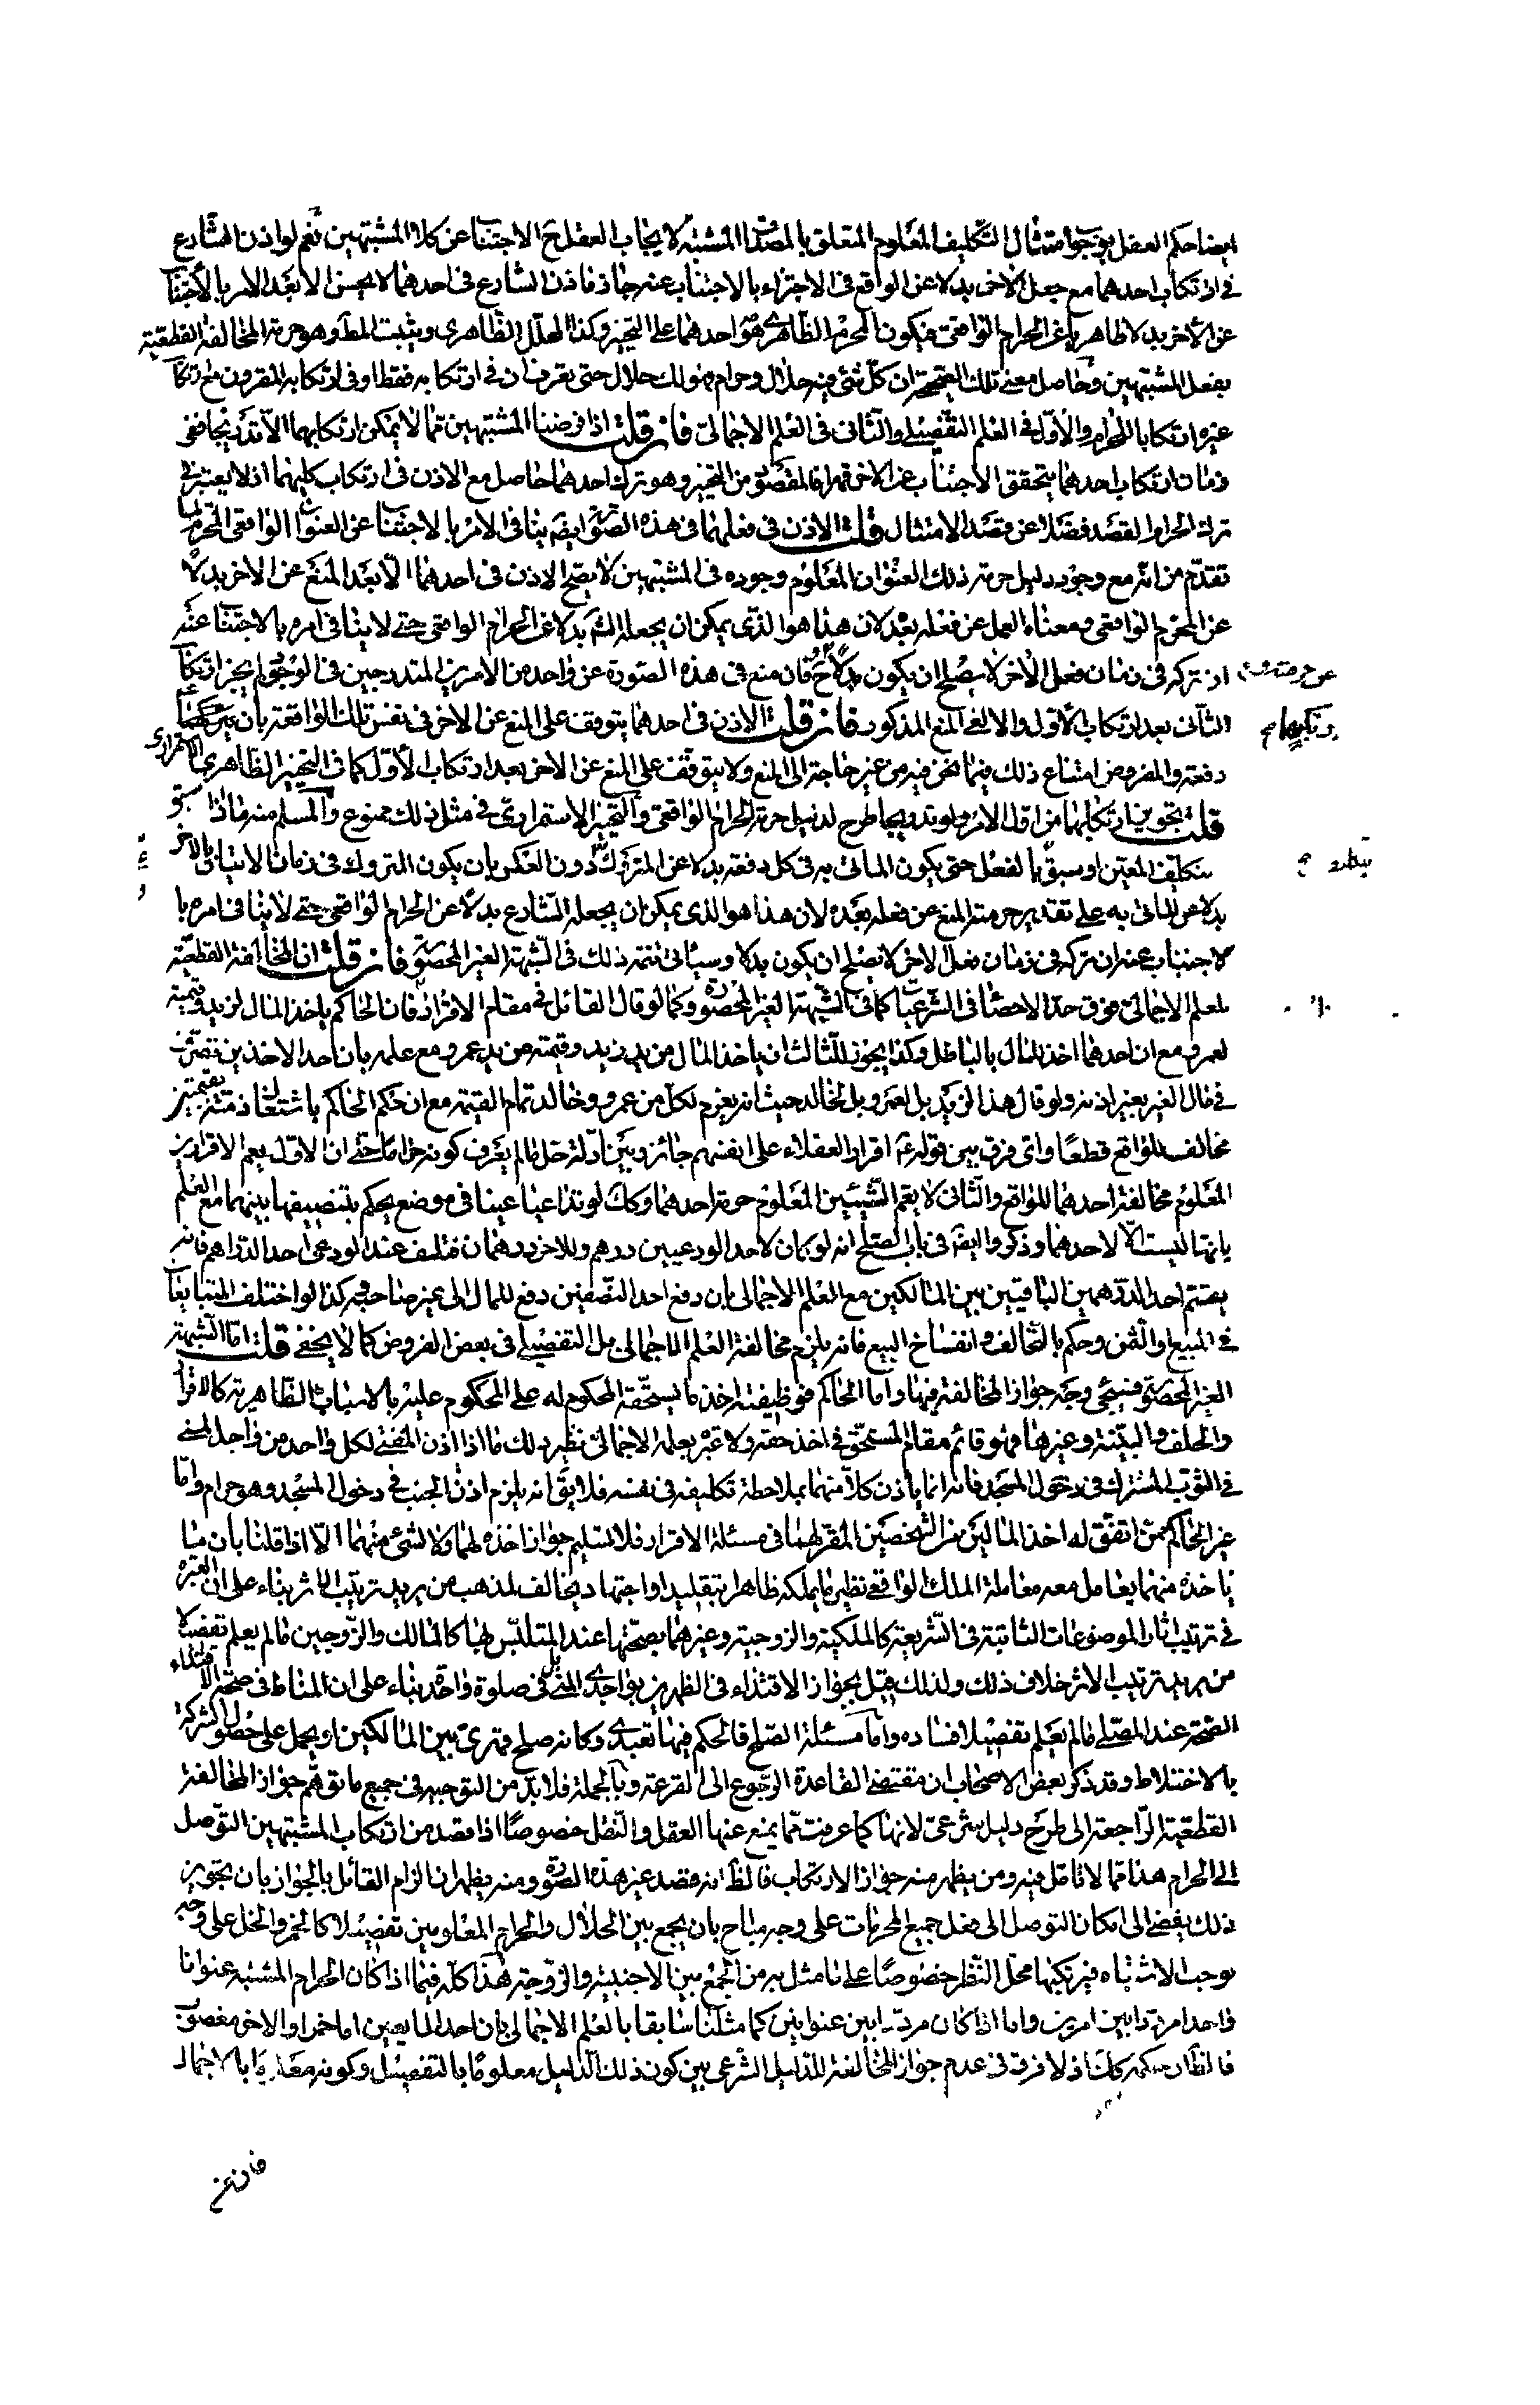 ايضا حكم العقل بوجوب امتثال التكليف المعلوم المتعلق بالمصداق المشتبه لايجاب العقل ح الاجتناب عن كلا المشتبهين نعم لو اذن الشارع
في ارتكاب احدهما مع جعل الاخر بدلا عن الواقع في الاجتزاء بالاجتناب عنه جاز فاذن الشارع في احدهما لا يحسن الا بعد الامر بالاجتناب
عن الاخر بدلا ظاهريا عن الحرام الواقعي فيكون المحرم الظاهري هو احدهما على التخيير وكذا المحلل الظاهري ويثبت المط وهو حرمة المخالفة القطعية
بفعل المشتبهين وحاصل معنى تلك الصحيحة ان كل شئ فيه حلال وحرام فهو لك حلال حتى تعرف ان في ارتكابه فقط او في ارتكابه المقرون مع ارتكاب
غيره ارتكابا للحرام والاول في العلم التفصيلي والثاني في العلم الاجمالي فان قلت اذا فرضنا المشتبهين مما لا يمكن ارتكابهما الا تدريجا ففي
زمان ارتكاب احدهما يتحقق الاجتناب عن الاخر قهرا فالمقصود من التخيير وهو ترك احدهما حاصل مع الاذن في ارتكاب كليهما اذ لا يعتبر في
ترك الحرام القصد فضلا عن قصد الامتثال قلت الاذن في فعلهما في هذه الصورة ايضه ينافي الامر بالاجتناب عن العنوان الواقعي المحرم لما
تقدم من انه مع وجود دليل حرمة ذلك العنوان المعلوم وجوده في المشتبهين لا يصح الاذن في احدهما الا بعد المنع عن الاخر بدلا
عن المحرم الواقعي ومعناه العمل عن فعله بعد لان هذا هو الذي يمكن ان يجعله الش بدلا عن الحرام الواقعي حتى لا ينافي امره بالاجتناب عنه
اذ تركه في زمان فعل الاخر لا يصلح ان يكون بدلا ح فان منع في هذه الصورة عن واحد من الامرين المتدرجين في الوجود لم يجز ارتكاب
الثاني بعد ارتكاب الاول والا لغى المنع المذكور فان قلت الاذن في احدهما يتوقف على المنع عن الاخر في نفس تلك الواقعة بان
دفعة والمفروض امتناع ذلك فيما نحن فيه من غير حاجة الى المنع ولا يتوقف على المنع عن الاخر بعد ارتكاب الاول كما في التخيير الظاهري الاستمراري
قلت تجويز ارتكابهما من اول الامر ولو تدريجا طرح لدليل حرمة الحرام الواقعي والتخيير الاستمراري في مثل ذلك ممنوع والمسلم منه ما اذا سبق
تكليف المعين او سبق بالفعل حتى يكون الماتي به في كل دفعة بدلا عن المتروك دون العكس بان يكون المتروك في زمان الاتيان بالاخر
بدلا عن الماتي به على تقدير حرمته المنع عن فعله بعده لان هذا هو الذي يمكن ان يجعله الشارع بدلا عن الحرام الواقعي حتى لا ينافي امره با
لاجتناب عنه ان تركه في زمان فعل الاخر لا يصلح ان يكون بدلا وسياتي تتمة ذلك في الشبهة الغير المحصورة فان قلت ان المخالفة القطعية
للعلم الاجمالي فوق حد الاحصاء في الشرعيات كما في الشبهة الغير المحصورة وكما لو قال القائل في مقام الاقرار فان الحاكم ياخذ المال لزيد وقيمته
لعمرو مع ان احدهما اخذ للمال بالباطل وكذا يجوز للثالث ان ياخذ المال من يد زيد وقيمته من يد عمرو مع علمه بان احد الاخذين تصرف
في مال الغير بغير اذنه ولو قال هذا لزيد بل لعمرو بل لخالد حيث انه يغرم لكل من عمرو وخالد تمام القيمة مع ان حكم الحاكم باشتغال ذمته بقيمتين
مخالف للواقع قطعا واي فرق بين قوله ع اقرار العقلاء على انفسهم جائز وبين ادلة حل ما لم يعرف كونه حراما حتى ان الاول يعم الاقرارين
المعلوم مخالفة احدهما للواقع والثاني لا يعم الشيئين المعلوم حرمة احدهما وكك لو تداعيا عينا في موضع يحكم بتنصيفها بينهما مع العلم
بانها ليست الا لاحدهما وذكروا ايضه في باب الصلح انه لو كان لاحد الودعيين درهم وللاخر درهمان فتلف عند الودعي احد الدراهم فانه
يقسم احد الدرهمين الباقيين بين المالكين مع العلم الاجمالي بان دفع احد النصفين دفع للمال الى غير صاحبه وكذا لو اختلف المتبايعان
في المبيع او الثمن وحكم بالتحالف وانفساخ البيع فانه يلزم مخالفة العلم الاجمالي بل التفصيلي في بعض الفروض كما لا يخفى قلت اما الشبهة
الغير المحصورة فسيجئ وجه جواز المخالفة فيها واما الحاكم فوظيفته اخذ ما يستحقه المحكوم له على المحكوم عليه بالاسباب الظاهرية كالاقرار
والحلف والبينة وغيرها فهو قائم مقام المستحق في اخذ حقه ولا عبرة بعلمه الاجمالي نظير ذلك ما اذا اذن المفتي لكل واحد من واجدي المني
في الثوب المشترك في دخول المسجد فانه انما ياذن كلا منهما بملاحظة تكليفه في نفسه فلا يقال انه يلزم اذن الجنب في دخول المسجد وهو حرام واما
غير الحاكم ممن اتفق له اخذ المالين من الشخصين المقر لهما في مسئلة الاقرار فلا نسلم جواز اخذه لهما ولا لشئ منهما الا اذا قلنا بان ما
ياخذه منهما يعامل معه معاملة الملك الواقعي نظير ما يملكه ظاهرا بتقليد او اجتهاد يخالف لمذهب من يريد ترتيب الاثر بناء على ان العبرة
في ترتيب اثار الموضوعات الثابتة في الشريعة كالملكية والزوجية وغيرهما بصحتها عند المتلبس بها كالمالك والزوجين ما لم يعلم تفصيلا
من يريد ترتيب الاثر خلاف ذلك ولذلك قيل بجواز الاقتداء في الظهرين بواجدي المني في صلوة واحدة بناء على ان المناط في صحة الاقتداء
الصحة عند المصلي ما لم يعلم تفصيلا فساده واما مسئلة الصلح فالحكم فيها تعبدي وكانه صلح قهري بين المالكين او يحمل على حصول الشركة
بالاختلاط وقد ذكر بعض الاصحاب ان مقتضى القاعدة الرجوع الى القرعة وبالجملة فلا بد من التوجيه في جميع ما توهم جواز المخالفة
القطعية الراجعة الى طرح دليل شرعي لانها كما عرفت مما يمنع عنها العقل والنقل خصوصا اذا قصد من ارتكاب المشتبهين التوصل
الى الحرام هذا مما لا تامل فيه ومن يظهر منه جواز الارتكاب فالظ انه قصد غير هذه الصورة ومنه يظهر ان الزام القائل بالجواز بان تجويز
ذلك يفضي الى امكان التوصل الى فعل جميع المحرمات على وجه مباح بان يجمع بين الحلال والحرام المعلومين تفصيلا كالخمر والخل على وجه
يوجب الاشتباه فيرتكبهما محل النظر خصوصا على ما مثل به من الجمع بين الاجنبية والزوجة هذا كله فيما اذا كان الحرام المشتبه عنوانا
واحدا مرددا بين امرين واما اذا كان مرددا بين عنوانين كما مثلنا سابقا بالعلم الاجمالي بان احد المايعين اما خمر او الاخر مغصوب
فالظ ان حكمه كك اذ لا فرق في عدم جواز المخالفة للدليل الشرعي بين كون ذلك الدليل معلوما بالتفصيل وكونه معلوما بالاجمال
فان من